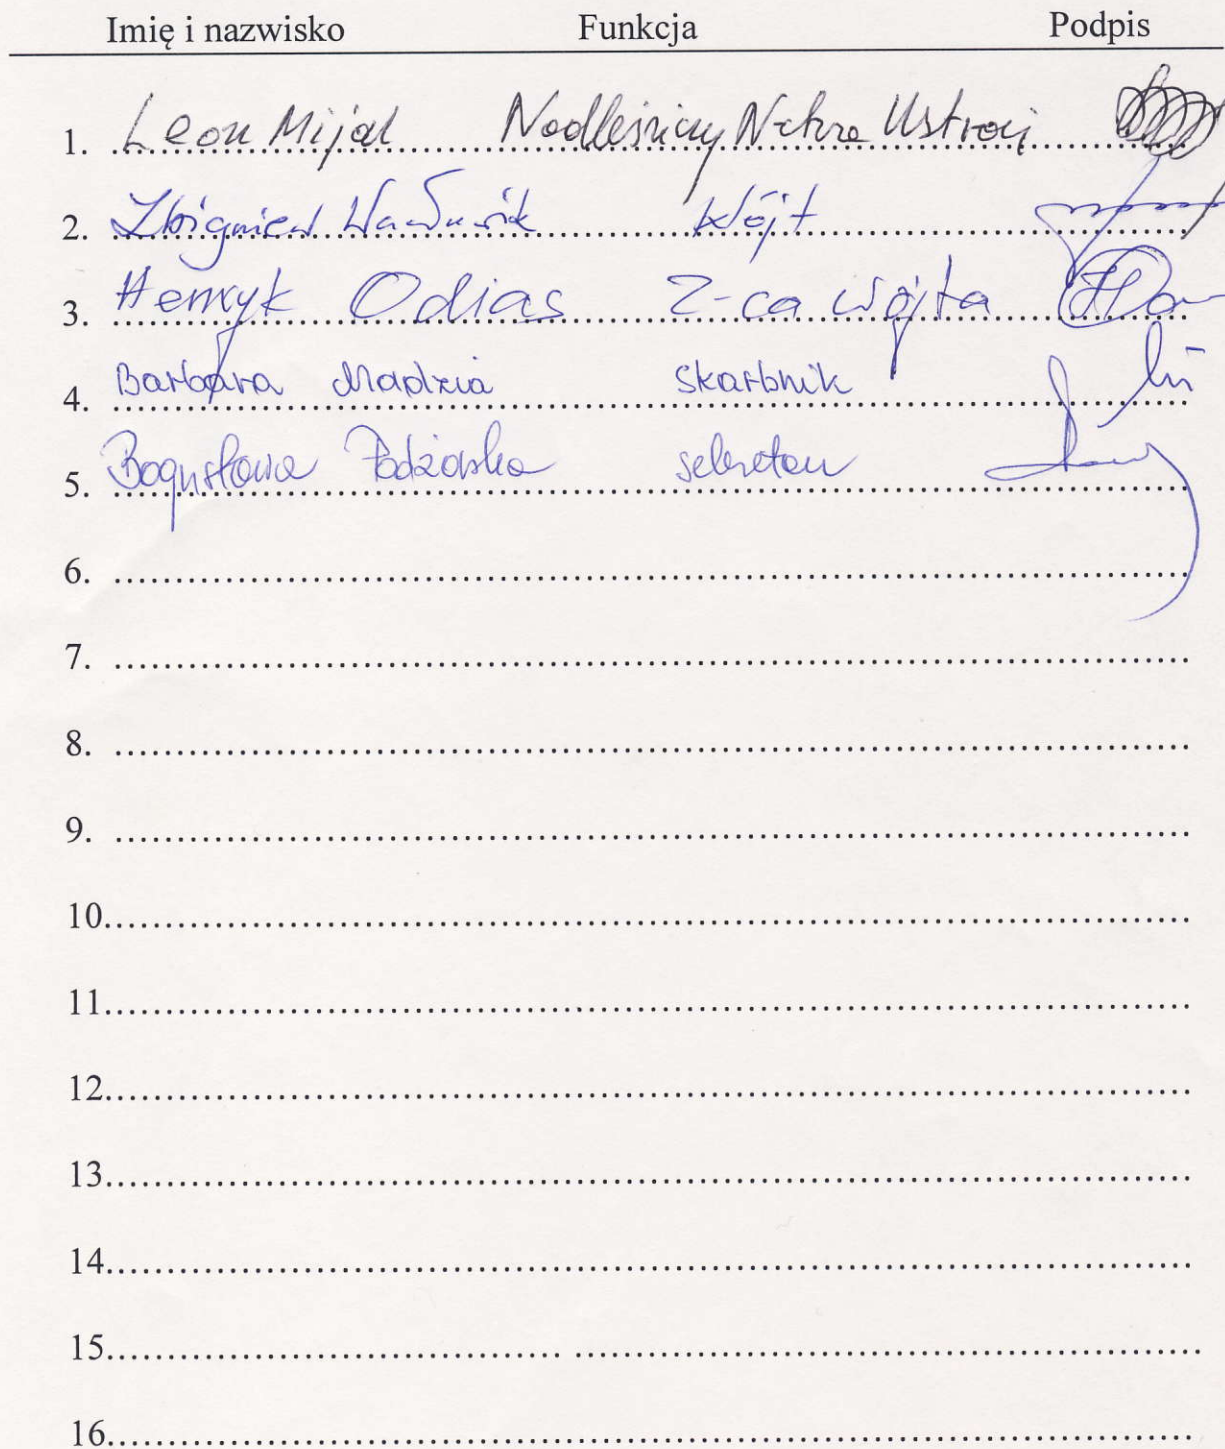 Imię i nazwisko Funkcja Podpis
1. Leon Mijal Nadleśniczy N-ctwa Ustroń
2. Zbigniew Wawrzik Wójt
3. Henryk Odias Z-ca wójta
4. Barbara Madzia skarbnik
5. Bogusława sekretarz
6.
7.
8.
9.
10.
11.
12.
13.
14.
15.
16.